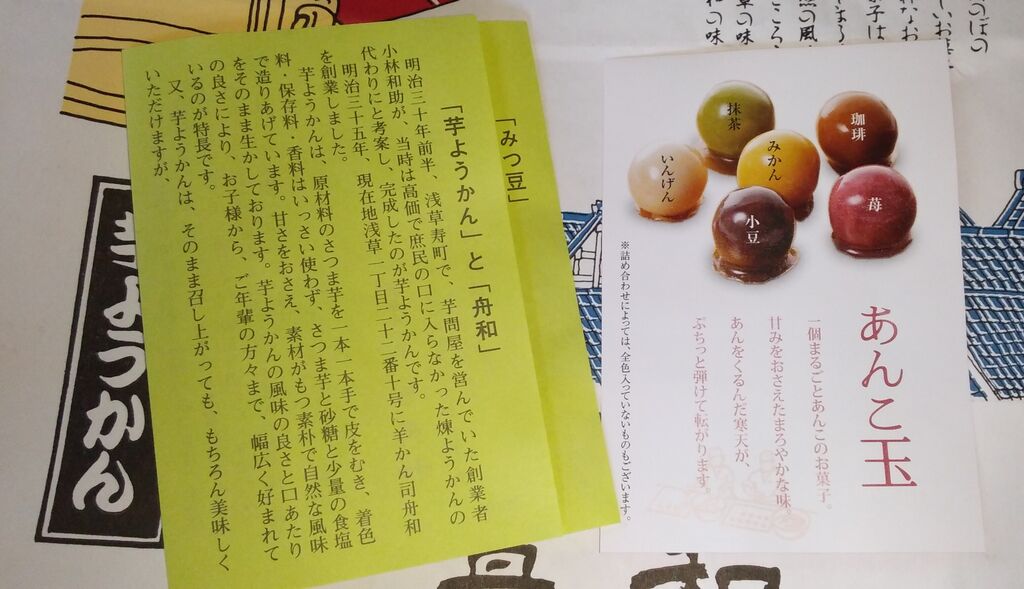 「みつ豆」
「芋ようかん」と「舟和」
明治三十年前半、浅草寿町で、芋問屋を営んでいた創業者
小林和助が、当時は高価で庶民の口に入らなかった煉ようかんの
代わりにと考案し、完成したのが芋ようかんです。
明治三十五年、現在地浅草一丁目二十二番十号に羊かん司舟和
を創業しました。
芋ようかんは、原材料のさつま芋を一本一本手で皮をむき、着色
料・保存料・香料はいっさい使わず、さつま芋と砂糖と少量の食塩
で造りあげています。甘さをおさえ、素材がもつ素朴で自然な風味
をそのまま生かしております。芋ようかんの風味の良さと口あたり
の良さにより、お子様から、ご年輩の方々まで、幅広く好まれて
いるのが特長です。
又、芋ようかんは、そのまま召し上がっても、もちろん美味しく
いただけますが、
あんこ玉
一個まるごとあんこのお菓子。
甘みをおさえたまろやかな味、
あんをくるんだ寒天が、
ぷちっと弾けて転がります。
※詰め合わせによっては、全色入っていないものもございます。
珈琲
抹茶
みかん
いんげん
苺
小豆
ようかん